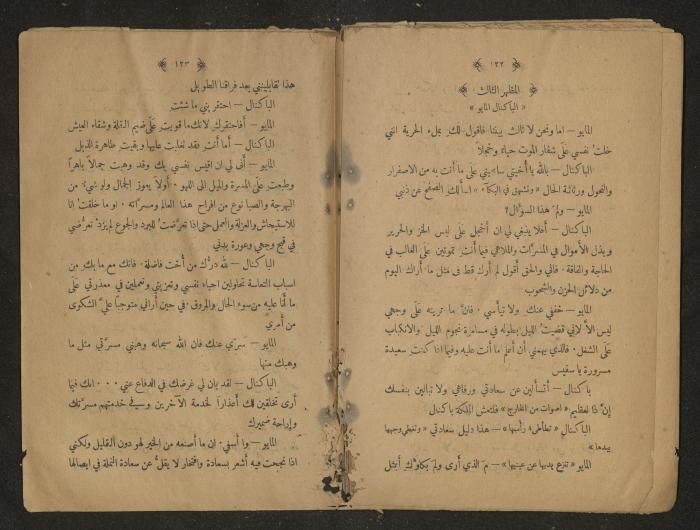 ١٢٢
المظهر الثالث
« الباكنال المايو »
المايو – اما ونحن لا ثالث بيننا فاقول لك بملء الحرية انني
خلت نفسي عَلَى شفار الموت حياءً وخجلاً
الباكنال – بالله يا أُختي سامحيني عَلَى ما أنت به من الاصفرار
والنحول ورثاثة الحال « وتشهق في البكآ » اسألك الصفح عن ذنبي
المايو – ولمَ هذا السؤَال؟
الباكنال – أفلا ينبغي لي ان أخجل عَلَى لبس الخز والحرير
وبذل الأموال في المسرَّات والملاهي فيما أنت تموتين عَلَى الغالب في
الحاجة والفاقة . فاني والحق أقول لم أرك قط في مثل ما أراك اليوم
من دلائل الحزن والشحوب
المايو – خففي عنك ولا تيأسي . فانَّ ما ترينه عَلَى وجهي
ليس الاَّ لاني قضيت الليل بطوله في مسامرة نجوم الليل والانكباب
عَلَى الشغل . فالذي يهمني أن أعلم ما أنت عليه وفيما اذا كنت سعيدة
مسرورة يا سقيس
باكنال – أتسألين عن سعادتي ورفاهي ولا تبالين بنفسك
إنَّ ذا لعظيم « اصوات من الخارج » فلتعش الملكة باكنال
الباكنال « تطأطئ رأسها » – هذا دليل سعادتي « وتغطي وجهها
بيدها »
المايو « تنزع يديها عن عينيها » – مَ الذي أرى ولمَ بكاؤك أبمثل
١٢٣
هذا تقابلينني بعد فراقنا الطويل
الباكنال – احتقريني ما شئت
المايو – أفأحتقرك لانك ما قويت عَلَى ضيم الذلة وشقاء العيش
الباكنال – أما أنت فقد تغلبت عليها وبقيت طاهرة الذيل
المايو – أنَّى لي ان اقيس نفسي بك وقد وهبت جمالاً باهراً
وطبعت عَلَى المسرة والميل الى اللهو . أولاً يعوز الجمال ولو شيء من
البهرجة والصبا نوع من افراح هذا العالم ومسرَّاته . او ما خلقت انا
للاستيحاش والعزلة والعمل حتى اذا تعرَّضت للبرد والجوع لم يزد تعرُّضي
في قبح وجهي وعورة بدني
الباكنال – لله درُّك من أُخت فاضلة . فانك مع ما بك من
اسباب التعاسة تحاولين احياء نفسي وتعزيتي وتعملين في معذرتي عَلَى
ما أنا عليه من سوء الحال والمروق . في حين أراني متوجباً عليَّ الشكوى
من أمري
المايو – سَرِّي عنك فان الله سبحانه وهبني مسرَّتي مثل ما
وهبك منها
الباكنال – لقد بان لي غرضك في الدفاع عني . . . انك فيما
أرى تختلقين لك أعذاراً لخدمة الآخرين وفي خدمتهم مسرَّتك
وإراحة ضميرك
المايو – وا أسفي . ان ما أصنعه من الخير لهو دون القليل ولكني
اذا نجحت فيه أشعر بسعادة وافتخار لا يقلُّ عن سعادة النملة في ايصالها